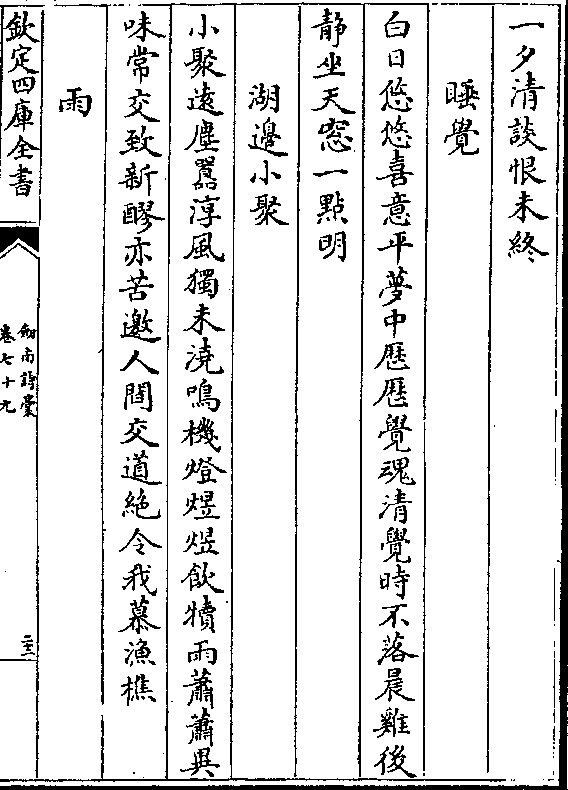 一夕清談恨未終
睡覺
白日悠悠喜意平夢中歷歷覺魂清覺時不落晨雞後
静坐天窓一點明
湖邊小聚
小聚遠塵囂淳風獨未澆鳴機燈煜煜飲犢雨蕭蕭異
味常交致新醪亦苦邀人間交道絶令我慕漁樵
雨
欽定四庫全書
劎南詩藁
卷七十九
二三